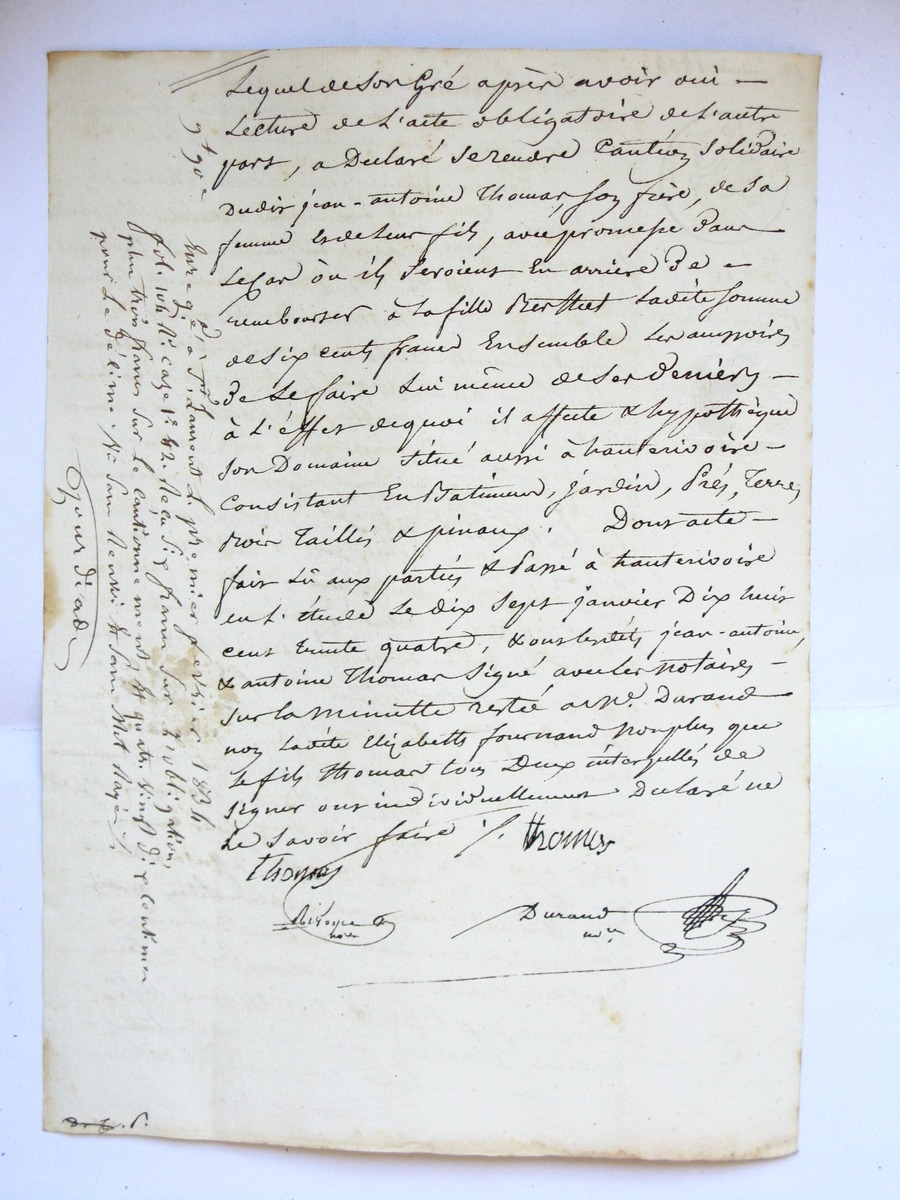 Lequel de son Gré après avoir oui —
Lecture de L'acte obligatoire de L'autre
part, a Déclaré se rendre Caution Solidaire
Dudit jean-antoine Thomas, son frère, de sa
femme & de Leur fils, avec promesse Dans
Le Cas où ils Seroient En arriere De —
rembourser à la fille Berthet Ladite Somme
de Six cents francs Ensemble Les accessoires
De Le faire Lui même de Ses Deniers —
à L'éffet dequoi il affecte & hypothèque
Son Domaine Situé aussi à hauterivoire —
Consistant En Batiments, jardin, Prés, Terres,
Bois Taillis & pinaux. Dont acte —
fait Lû aux parties & Passé à hauterivoire
en L'étude Le dix Sept janvier Dix huit
cent trente quatre, & ont Lesdits jean-antoine,
& antoine Thomas Signé avec Les notaires —
Sur La Minutte restée a Me. Durand
non Ladite Elizabeth fournand non plus que
Le fils Thomas tous Deux intérpellés de
Signer ont individuellement Déclaré ne
Le Savoir faire /. Thomas
Thomas
Durand
nore
Enregé à St. Laurent Le premier fevrier 1834
fol. Ro. case 1e. Reçu Six francs Sur L'obligation,
plus trois francs Sur Le Cautionnement & quatre vingt dix centimes
pour Le Décime. Ni Son Renvoi & Sans Mot Rayé ./.